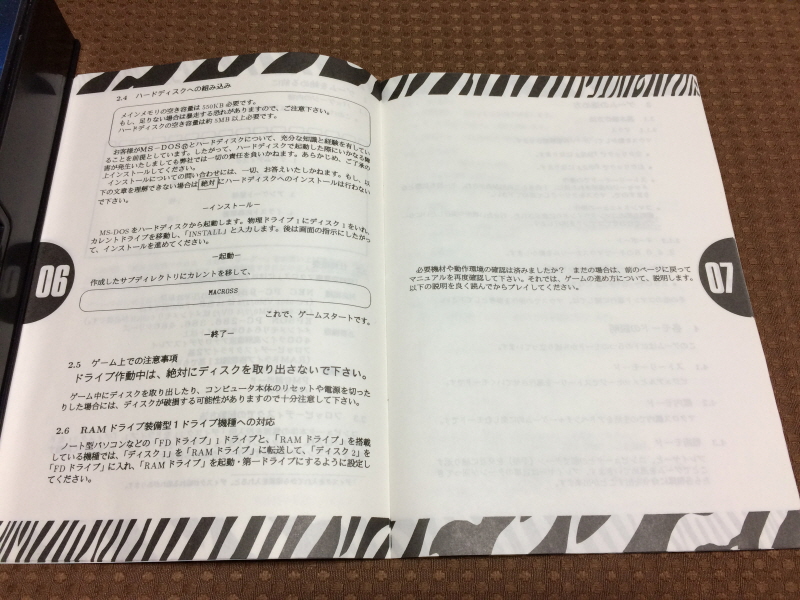 2.4 ハードディスクへの組み込み
メインメモリの空き容量は 550KB 必要です。
もし、足りない場合は暴走する恐れがありますので、ご注意下さい。
ハードディスクの空き容量は約 5MB 以上必要です。
お客様がMS-DOS®とハードディスクについて、充分な知識と経験を有してい
ることを前提としています。したがって、ハードディスクで起動した際にいかなる障
害が発生いたしましても弊社では一切の責任を負いかねます。あらかじめ、ご了承の
上インストールしてください。
インストールについての問い合わせには、一切、お答えいたしかねます。もし、以
下の文章を理解できない場合は 絶対 にハードディスクへのインストールは行わない
で下さい。
−インストール−
MS-DOS をハードディスクから起動します。物理ドライブ1にディスク1をいれ、
カレントドライブを移動し、「INSTALL」と入力します。後は画面の指示にしたがっ
て、インストールを進めてください。
−起動−
作成したサブディレクトリにカレントを移して、
MACROSS
これで、ゲームスタートです。
−終了−
2.5 ゲーム上での注意事項
ドライブ作動中は、絶対にディスクを取り出さないで下さい。
ゲーム中にディスクを取り出したり、コンピュータ本体のリセットや電源を切った
りした場合には、ディスクが破損する可能性がありますので十分注意して下さい。
2.6 RAMドライブ装備型1ドライブ機種への対応
ノート型パソコンなどの「FDドライブ」1ドライブと、「RAMドライブ」を搭載
している機種では、「ディスク1」を「RAMドライブ」に転送して、「ディスク2」を
「FDドライブ」に入れ、「RAMドライブ」を起動・第一ドライブにするように設定し
てください。
06
必要機材や動作環境の確認は済みましたか? まだの場合は、前のページに戻って
マニュアルを再度確認して下さい。それでは、ゲームの進め方について、説明します。
以下の説明を良く読んでからプレイしてください。
07